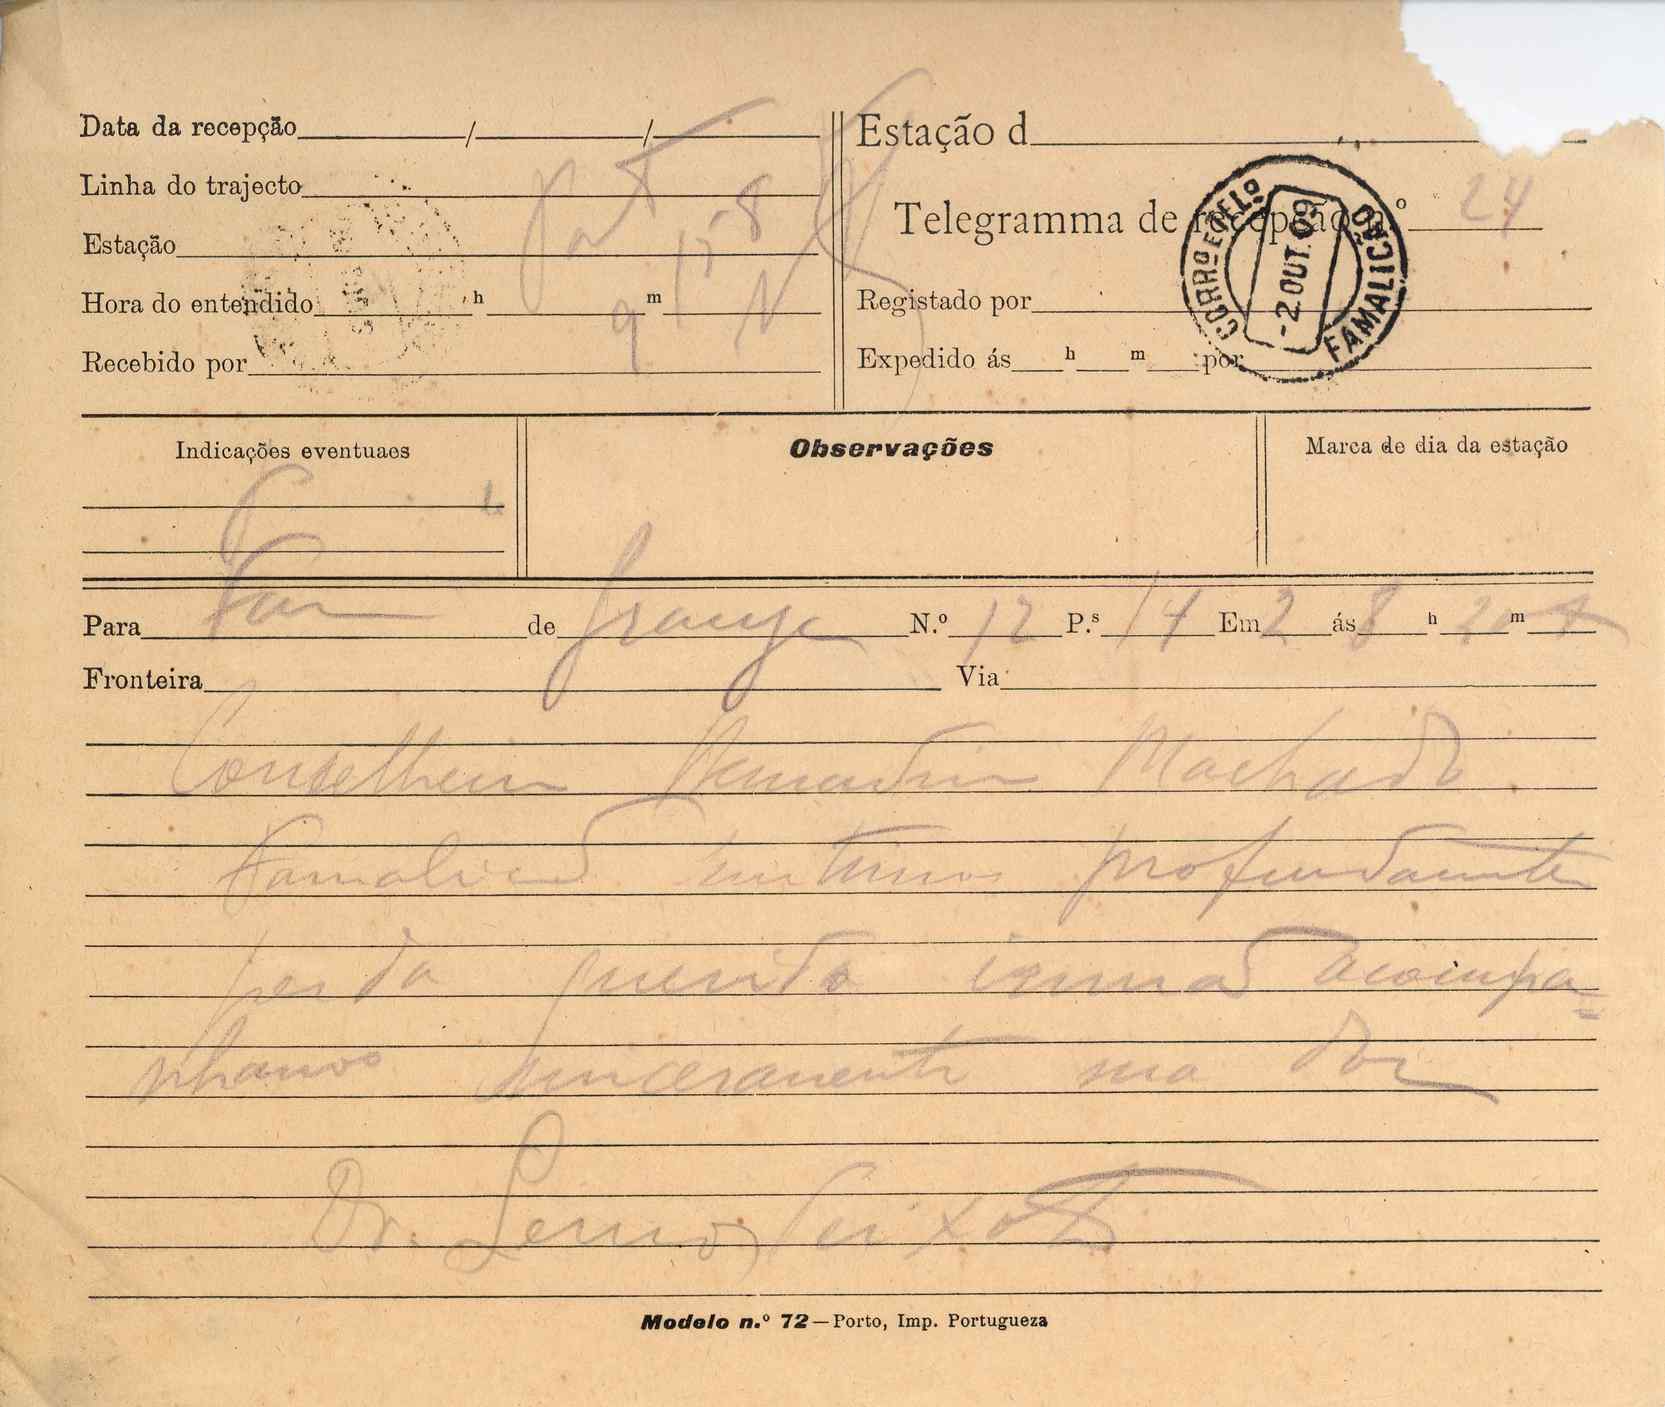 Data da recepção / /
Linha do trajecto
Estação
Hora do entendido h m
Recebido por
15-8
9
Estação d
Telegramma de recepção n.º 24
Registado por
Expedido ás h m por
CORRº E TELº
-2.OUT.09
FAMALICÃO
Indicações eventuaes
Observações
Marca de dia da estação
Para Fam de Granja N.º 12 P.s 14 Em 2 ás 8 h 20 m
Fronteira Via
Conselheiro Bernardino Machado
Famalicão sentimos profundamente
perda querido irmão acompa=
nhamos sinceramente sua dor
Dr. Lemos Peixoto
Modelo n.º 72—Porto, Imp. Portugueza